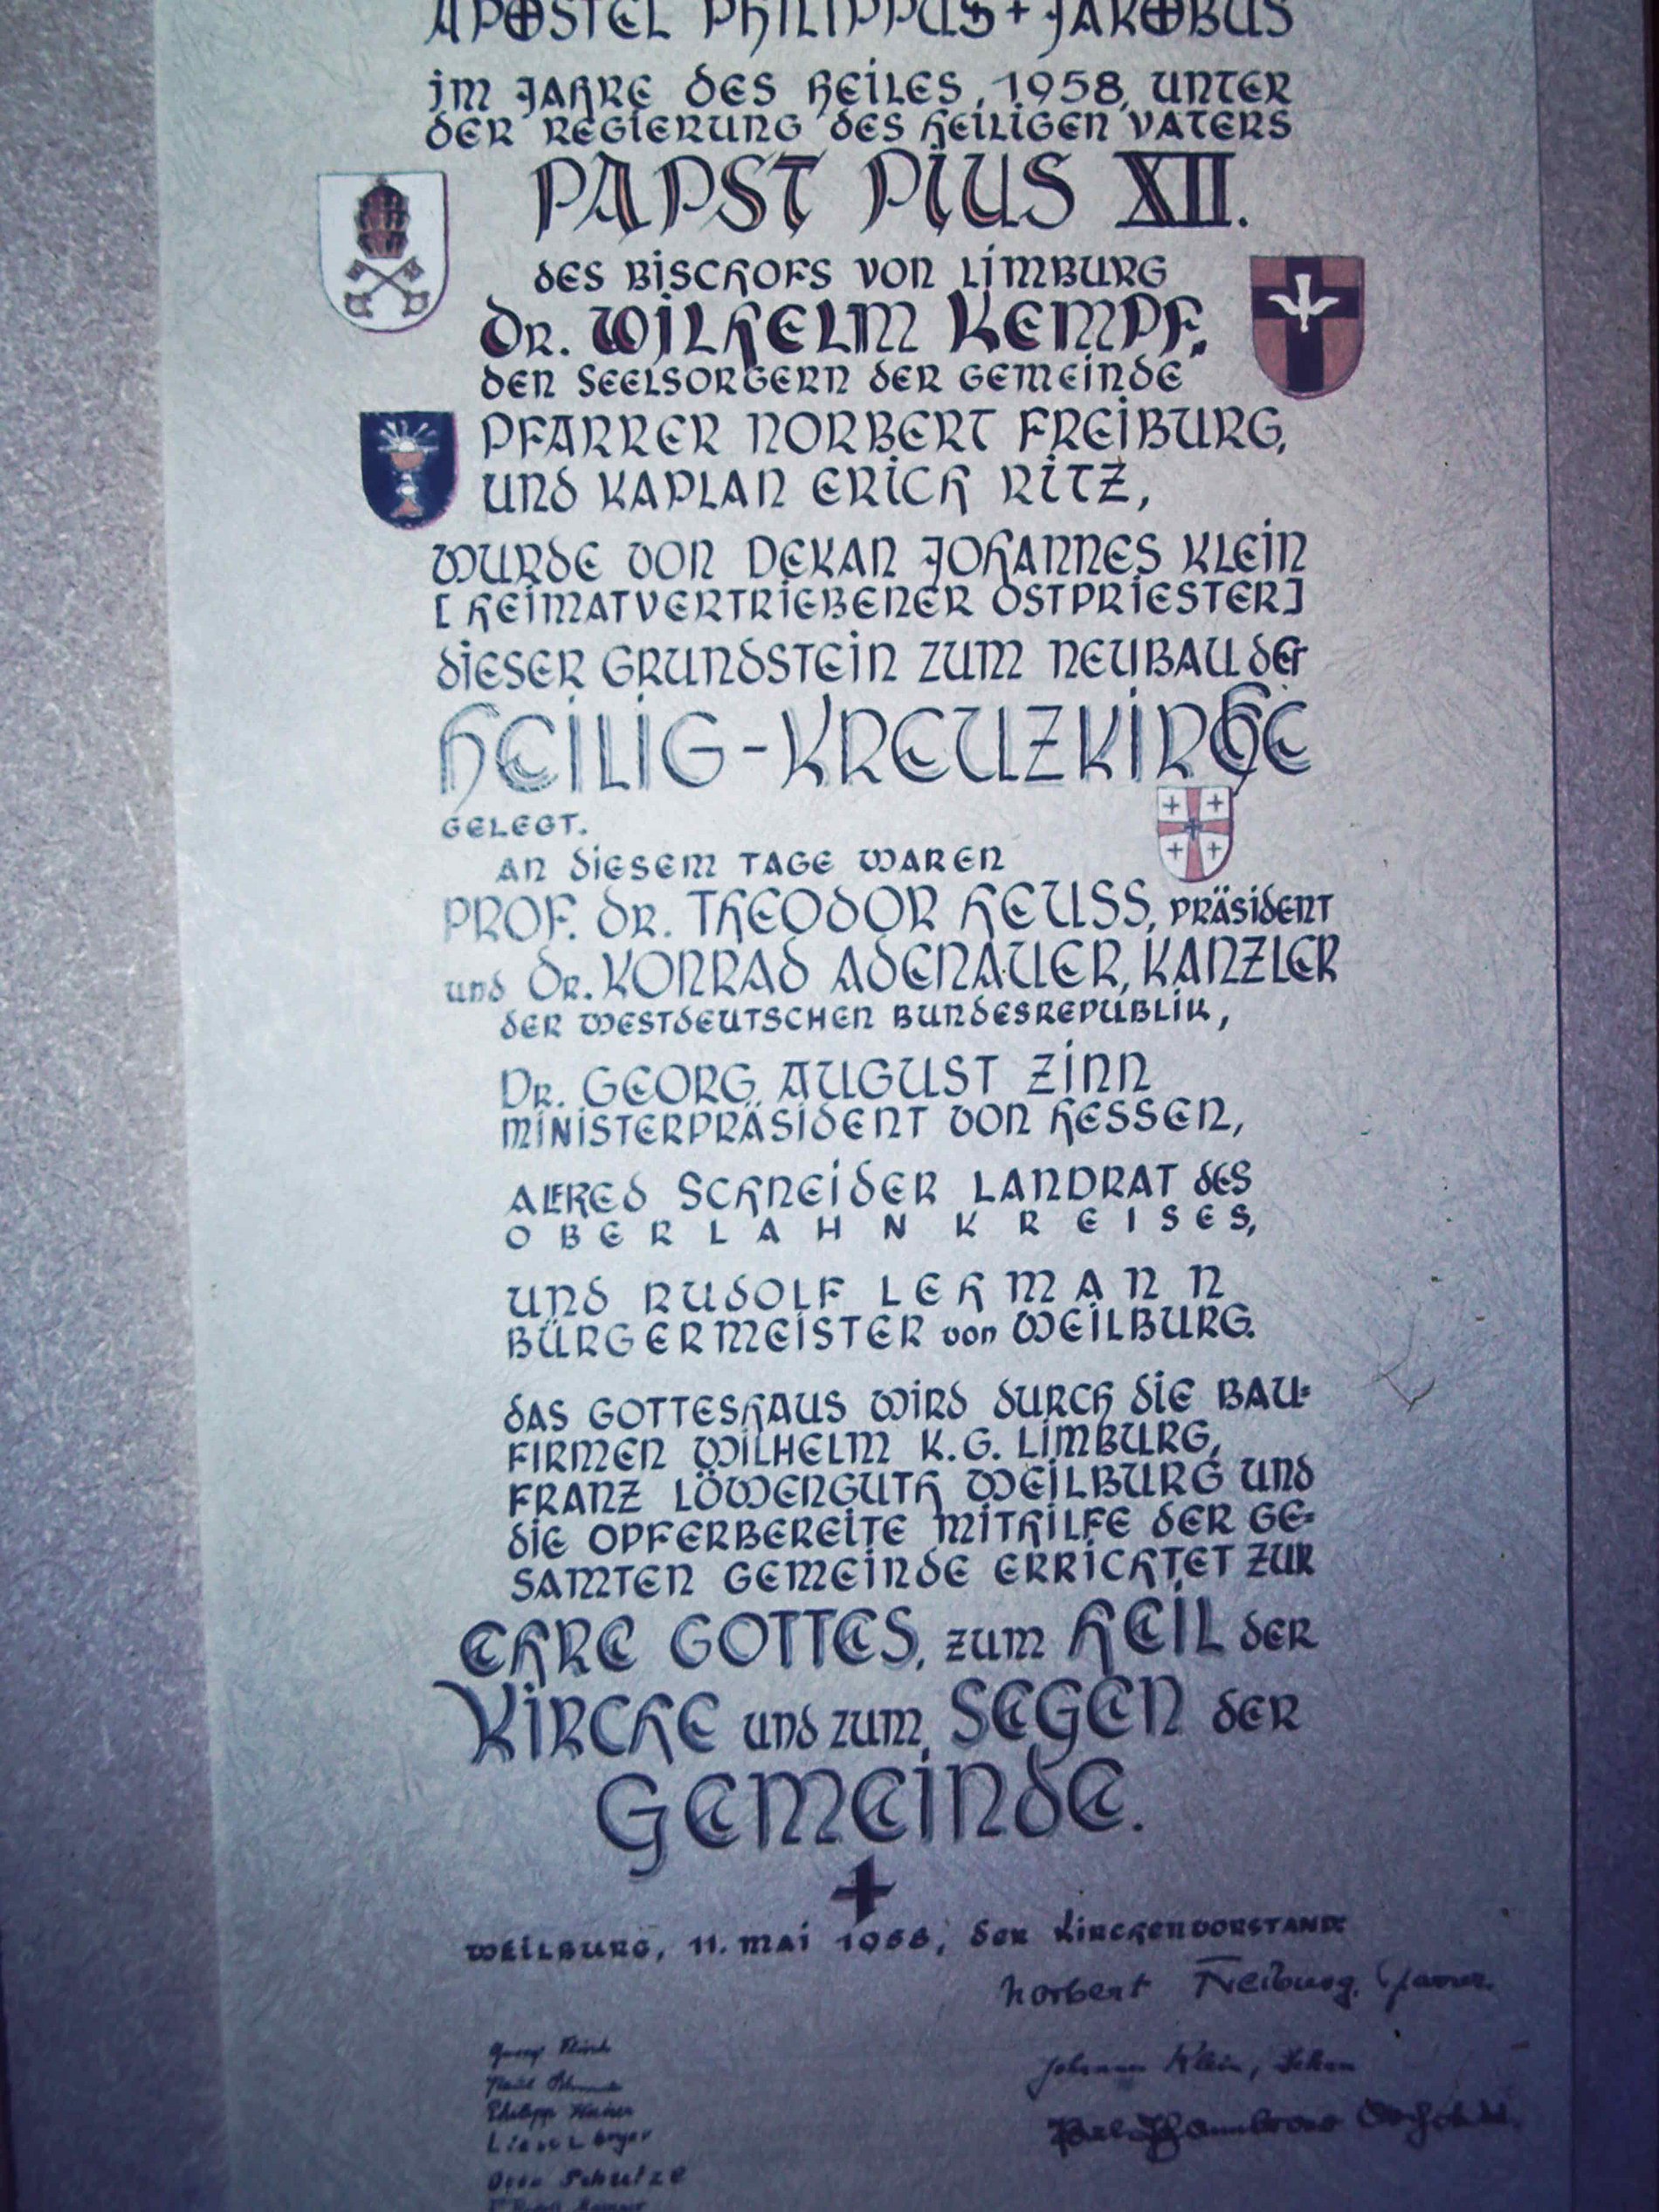 APOSTEL PHILIPPUS + JAKOBUS
im JAHRE DES HEILES, 1958, UNTER
DER REGIERUNG DES HEILIGEN VATERS
PAPST PIUS XII.
DES BISCHOFS VON LIMBURG
DR. WILHELM KEMPF,
DEN SEELSORGERN DER GEMEINDE
PFARRER NORBERT FREIBURG,
UND KAPLAN ERICH RITZ,
WURDE VON DEKAN JOHANNES KLEIN
[HEIMATVERTRIEBENER OSTPRIESTER]
DIESER GRUNDSTEIN ZUM NEUBAU DER
HEILIG-KREUZKIRCHE
GELEGT.
AN DIESEM TAGE WAREN
PROF. DR. THEODOR HEUSS, PRÄSIDENT
UND DR. KONRAD ADENAUER, KANZLER
DER WESTDEUTSCHEN BUNDESREPUBLIK,
DR. GEORG AUGUST ZINN
MINISTERPRÄSIDENT VON HESSEN,
ALFRED SCHNEIDER LANDRAT DES
OBERLAHNKREISES,
UND RUDOLF LEHMANN
BÜRGERMEISTER von WEILBURG.
DAS GOTTESHAUS WIRD DURCH DIE BAU=
FIRMEN WILHELM K.G. LIMBURG,
FRANZ LÖWENGUTH WEILBURG UND
DIE OPFERBEREITE MITHILFE DER GE=
SAMTEN GEMEINDE ERRICHTET ZUR
EHRE GOTTES, ZUM HEIL DER
KIRCHE UND ZUM SEGEN DER
GEMEINDE.
WEILBURG, 11. MAI 1958, DER KIRCHENVORSTAND:
Norbert Freiburg, Pfarrer.
Johannes Klein, Dekan
Otto Schulze